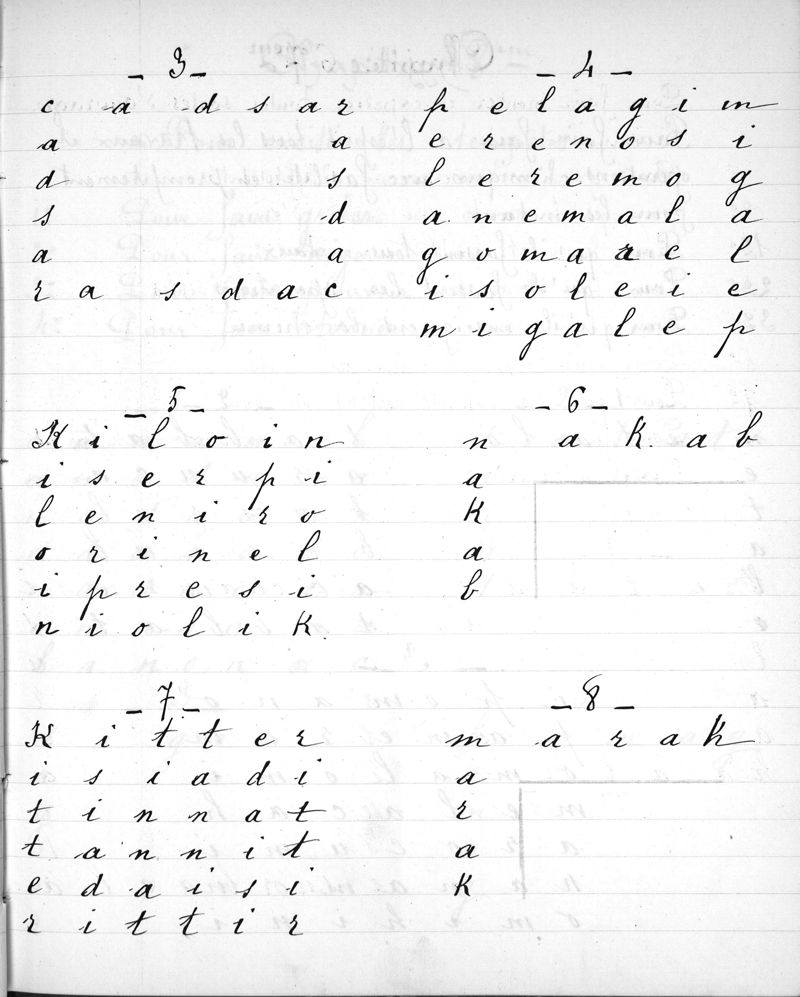 - 3 -
c a d s a r
a a
d s
s d
a a
r a s d a c
- 4 -
p e l a g i m
e r e n o s i
l e r e m o g
a n e m a l a
g o m a r e l
i s o l e i e
m i g a l e p
- 5 -
K i l o i n
i s e r p i
l e n i r o
o r i n e l
i p r e s i
n i o l i K
- 6 -
n a K a b
a
K
a
b
- 7 -
K i t t e r
i s i a d i
t i n n a t
t a n n i t
e d a i s i
r i t t i r
- 8 -
m a r a k
a
r
a
K